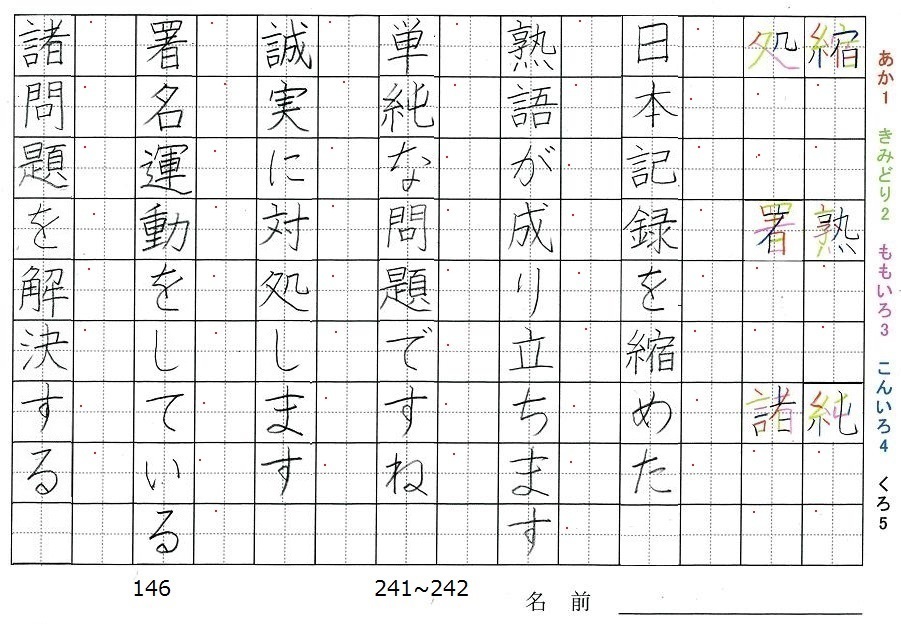 あか1 きみどり2 ももいろ3 こんいろ4 くろ5
縮 熟 純
処 署 諸
日本記録を縮めた
熟語が成り立ちます
単純な問題ですね
誠実に対処します
署名運動をしている
諸問題を解決する
146
241~242
名前